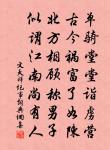 单骑堂堂诣虏营
古今祸福了如陈
北方相顾称男子
似谓江南尚有人
文天祥纪事词典网春